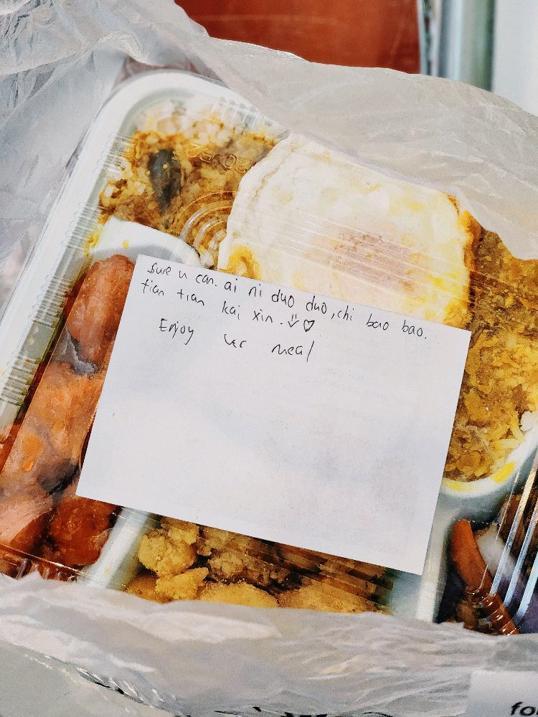 sure u can. ai ni duo duo, chi bao bao.
tian tian kai xin. ♡
Enjoy ur meal
fo